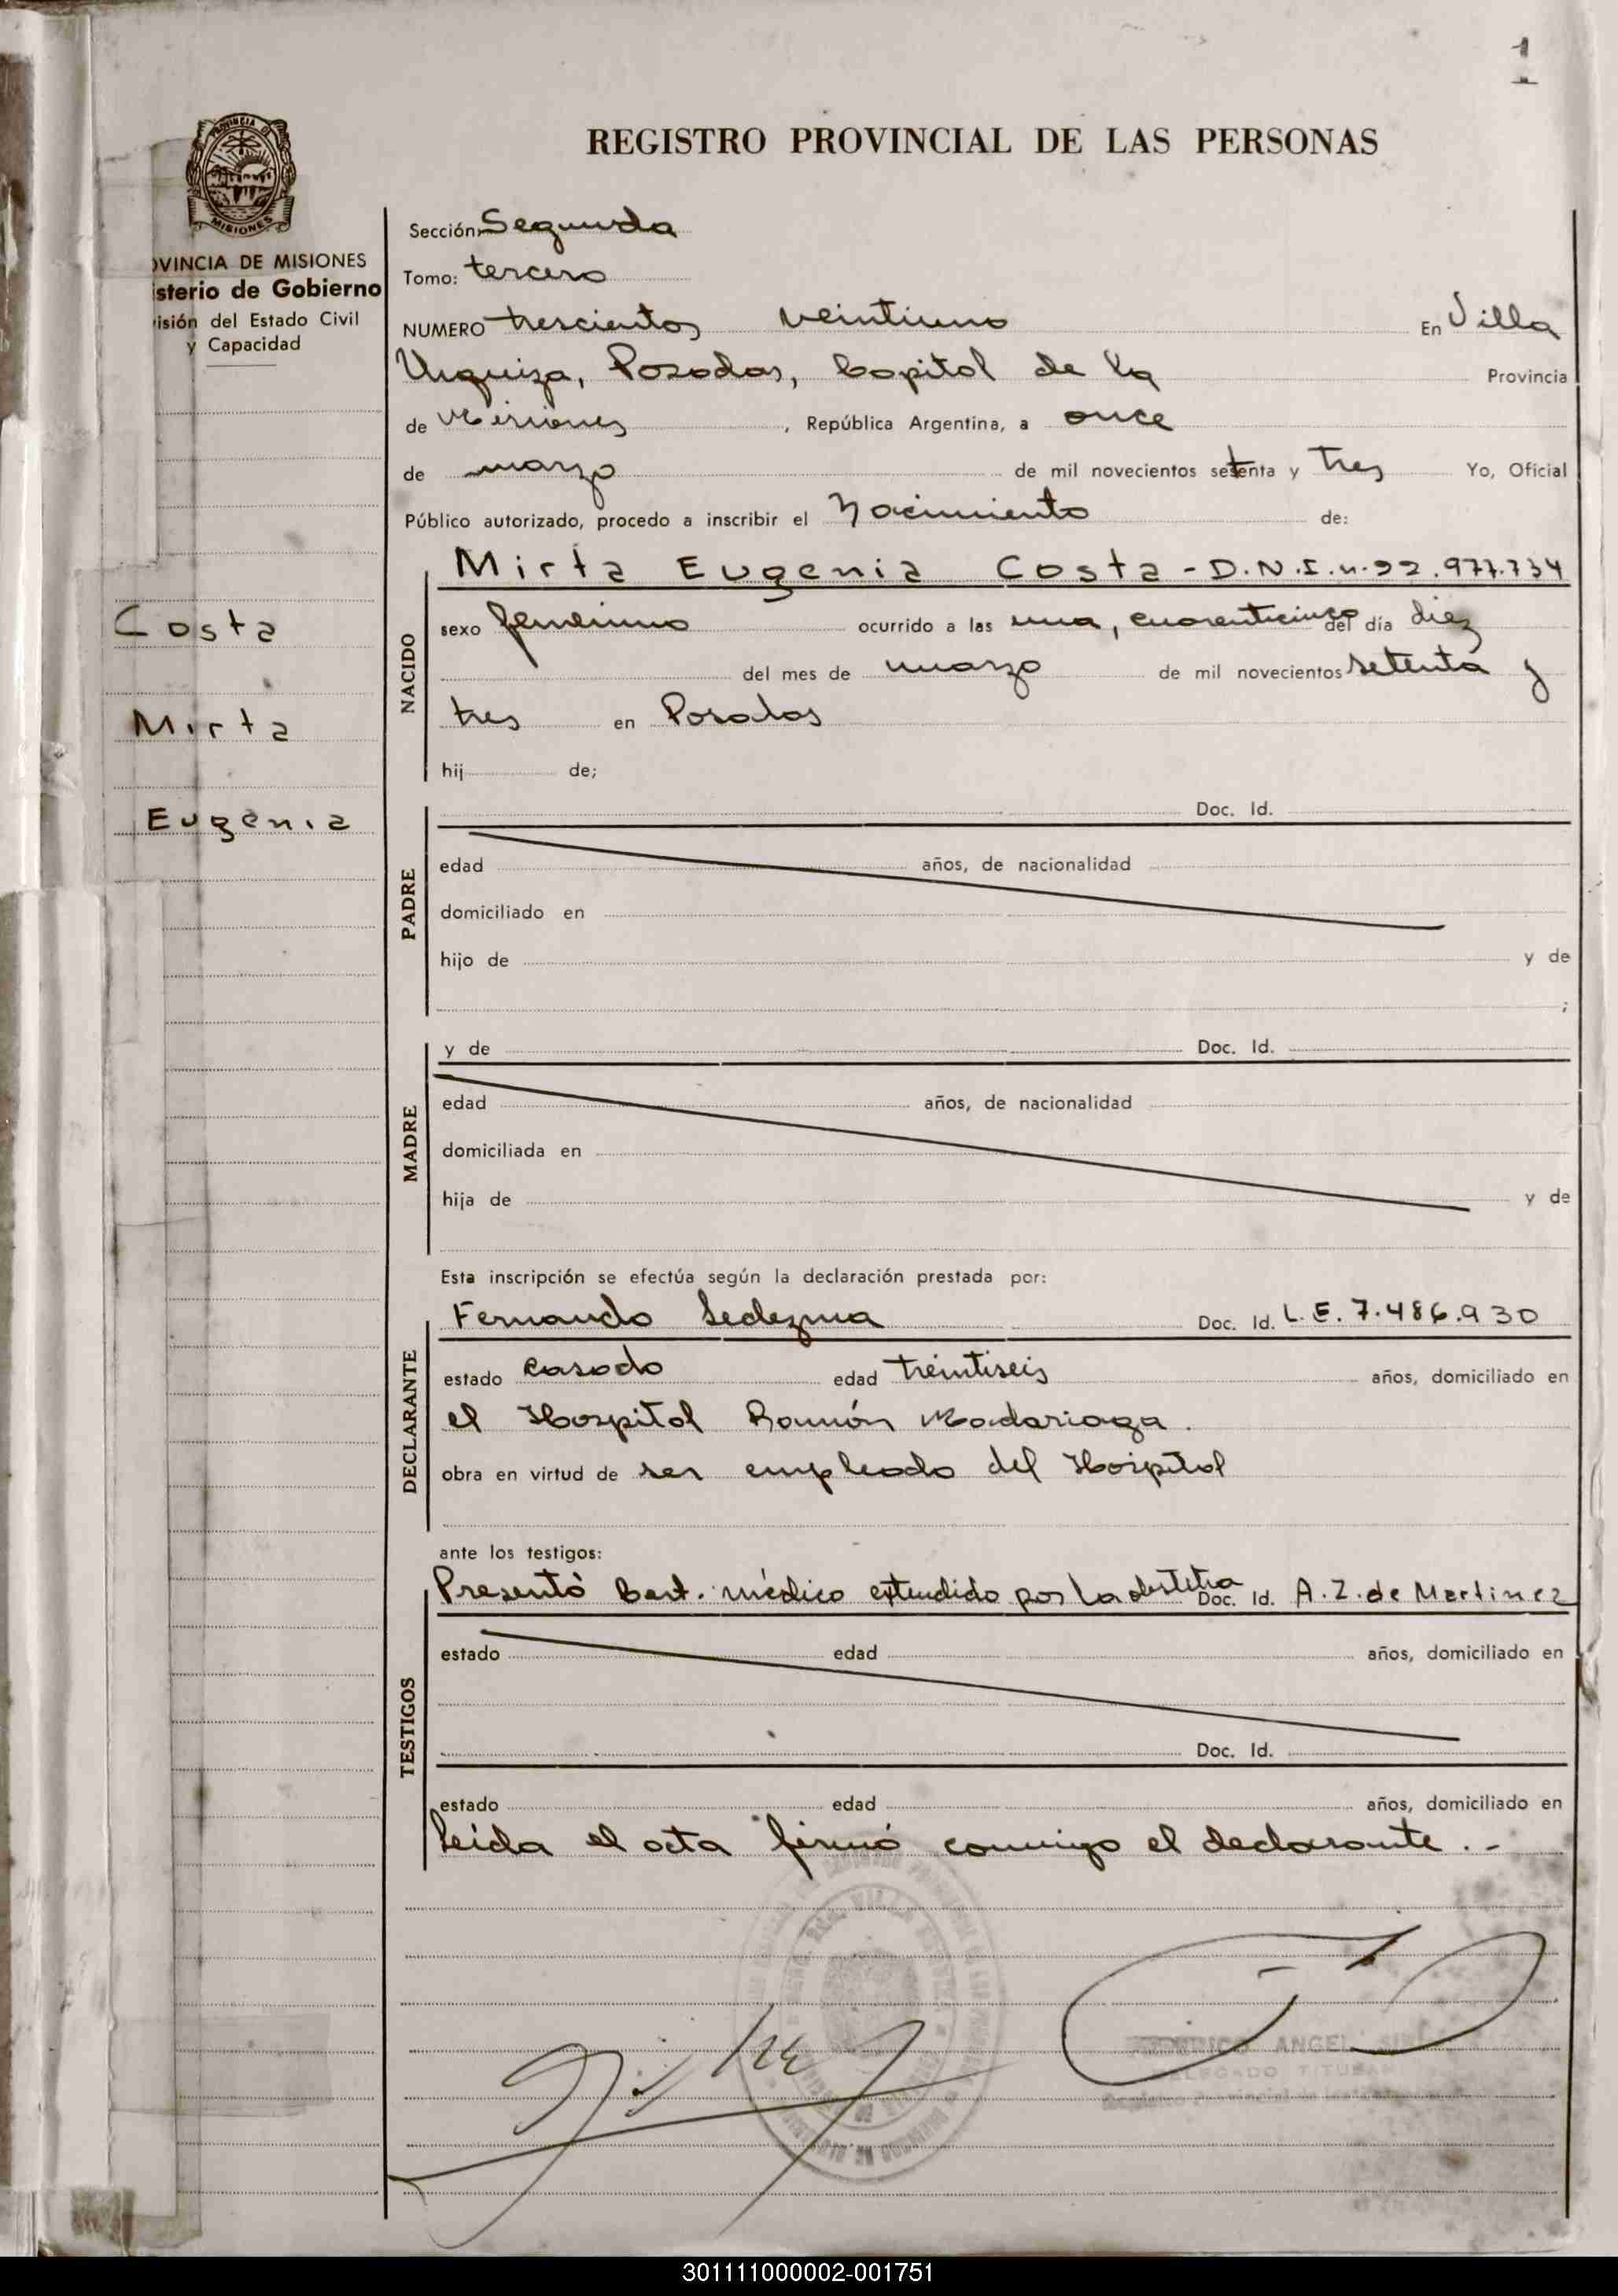 1
REGISTRO PROVINCIAL DE LAS PERSONAS
PROVINCIA DE
MISIONES
OVINCIA DE MISIONES
isterio de Gobierno
isión del Estado Civil
y Capacidad
Sección: Segunda
Tomo: tercero
NUMERO trescientos veintiuno En Villa
Urquiza, Posadas, Capital de la Provincia
de Misiones, República Argentina, a once
de marzo de mil novecientos setenta y tres Yo, Oficial
Público autorizado, procedo a inscribir el Nacimiento de:
Costa
Mirta
Eugenia
NACIDO
Mirta Eugenia Costa - D.N.I.n. 22.977.734
sexo femenino ocurrido a las una, cuarenticinco del día diez
del mes de marzo de mil novecientos setenta y
tres en Posadas
hij de;
PADRE
Doc. Id.
edad años, de nacionalidad
domiciliado en
hijo de y de
;
MADRE
y de Doc. Id.
edad años, de nacionalidad
domiciliada en
hija de y de
Esta inscripción se efectúa según la declaración prestada por:
DECLARANTE
Fernando Ledezma Doc. Id. L.E. 7.486.930
estado casado edad treintiseis años, domiciliado en
el Hospital Ramón Madariaga.
obra en virtud de ser empleado del Hospital
ante los testigos:
TESTIGOS
Presentó Cert. médico extendido por la obstetra Doc. Id. A.Z. de Martinez
estado edad años, domiciliado en
Doc. Id.
estado edad años, domiciliado en
Leída el acta firmó conmigo el declarante.-
ANGEL
TITULAR
301111000002-001751